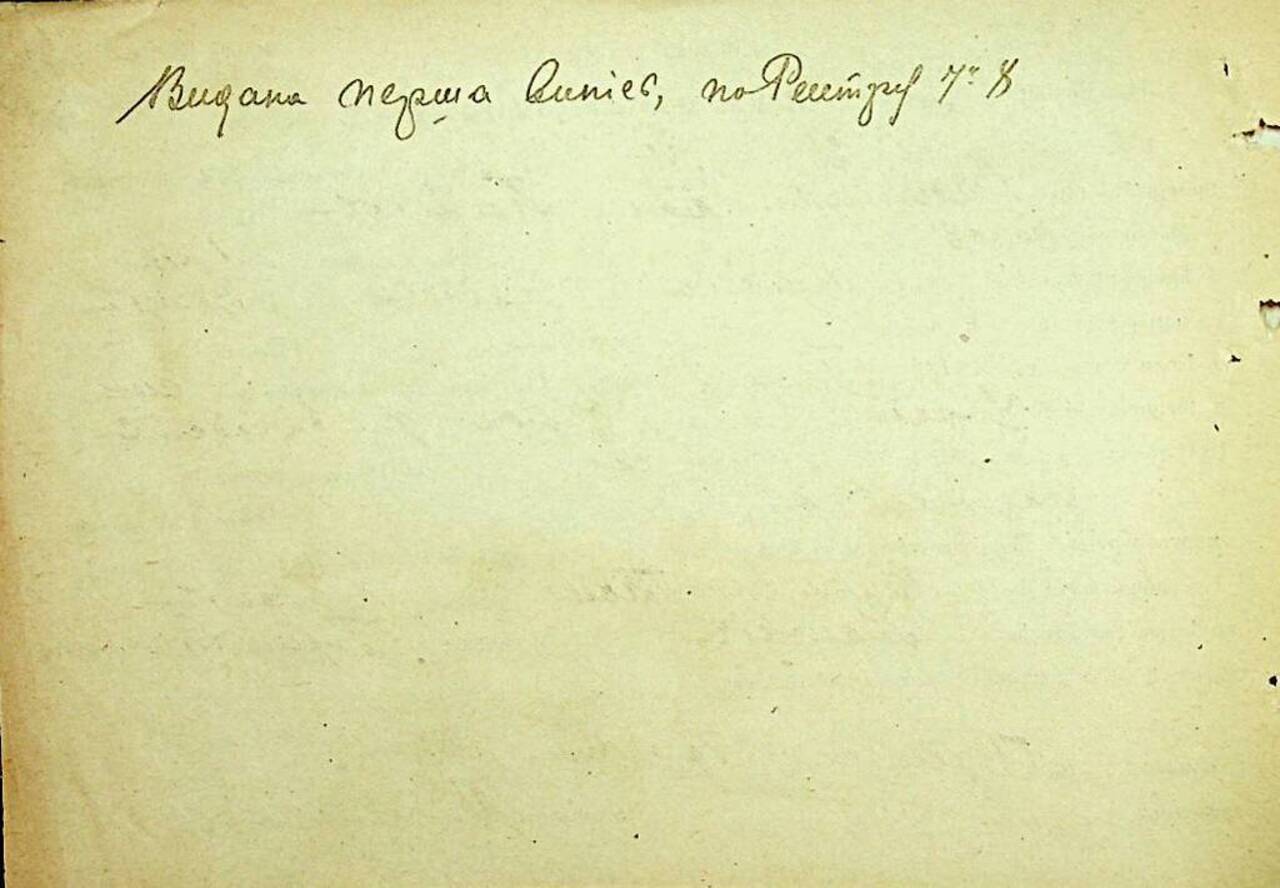 Видана перша випись, по Реєстру № 8